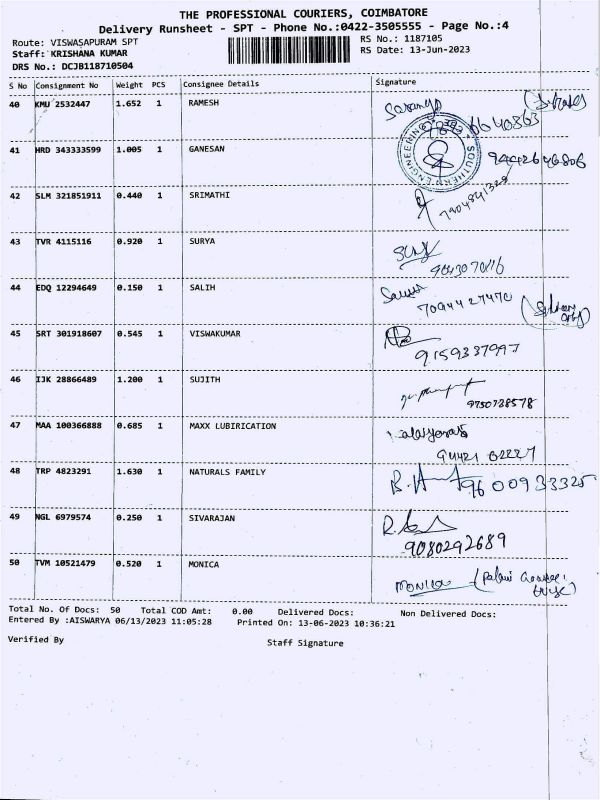 THE PROFESSIONAL COURIERS, COIMBATORE
Delivery Runsheet - SPT - Phone No.:0422-3505555 - Page No.:4
Route: VISWASAPURAM SPT RS No.: 1187105
Staff: KRISHANA KUMAR RS Date: 13-Jun-2023
DRS No.: DCJB118710504
S No Consignment No Weight PCS Consignee Details Signature
40 KMU 2532447 1.652 1 RAMESH
Saranya
SOUTHERN ENGINEERING
41 HRD 343333599 1.005 1 GANESAN
9442646806
42 SLM 321851911 0.440 1 SRIMATHI
7904841329
43 TVR 4115116 0.920 1 SURYA
44 EDQ 12294649 0.150 1 SALIH
7094427470
45 SRT 301918607 0.545 1 VISWAKUMAR
9159337997
46 IJK 28866489 1.200 1 SUJITH
9750738578
47 MAA 100366888 0.685 1 MAXX LUBIRICATION
94421 02227
48 TRP 4823291 1.630 1 NATURALS FAMILY
9600933325
49 NGL 6979574 0.250 1 SIVARAJAN
9080292689
50 TVM 10521479 0.520 1 MONICA
MONICA
Total No. Of Docs: 50 Total COD Amt: 0.00 Delivered Docs: Non Delivered Docs:
Entered By :AISWARYA 06/13/2023 11:05:28 Printed On: 13-06-2023 10:36:21
Verified By Staff Signature